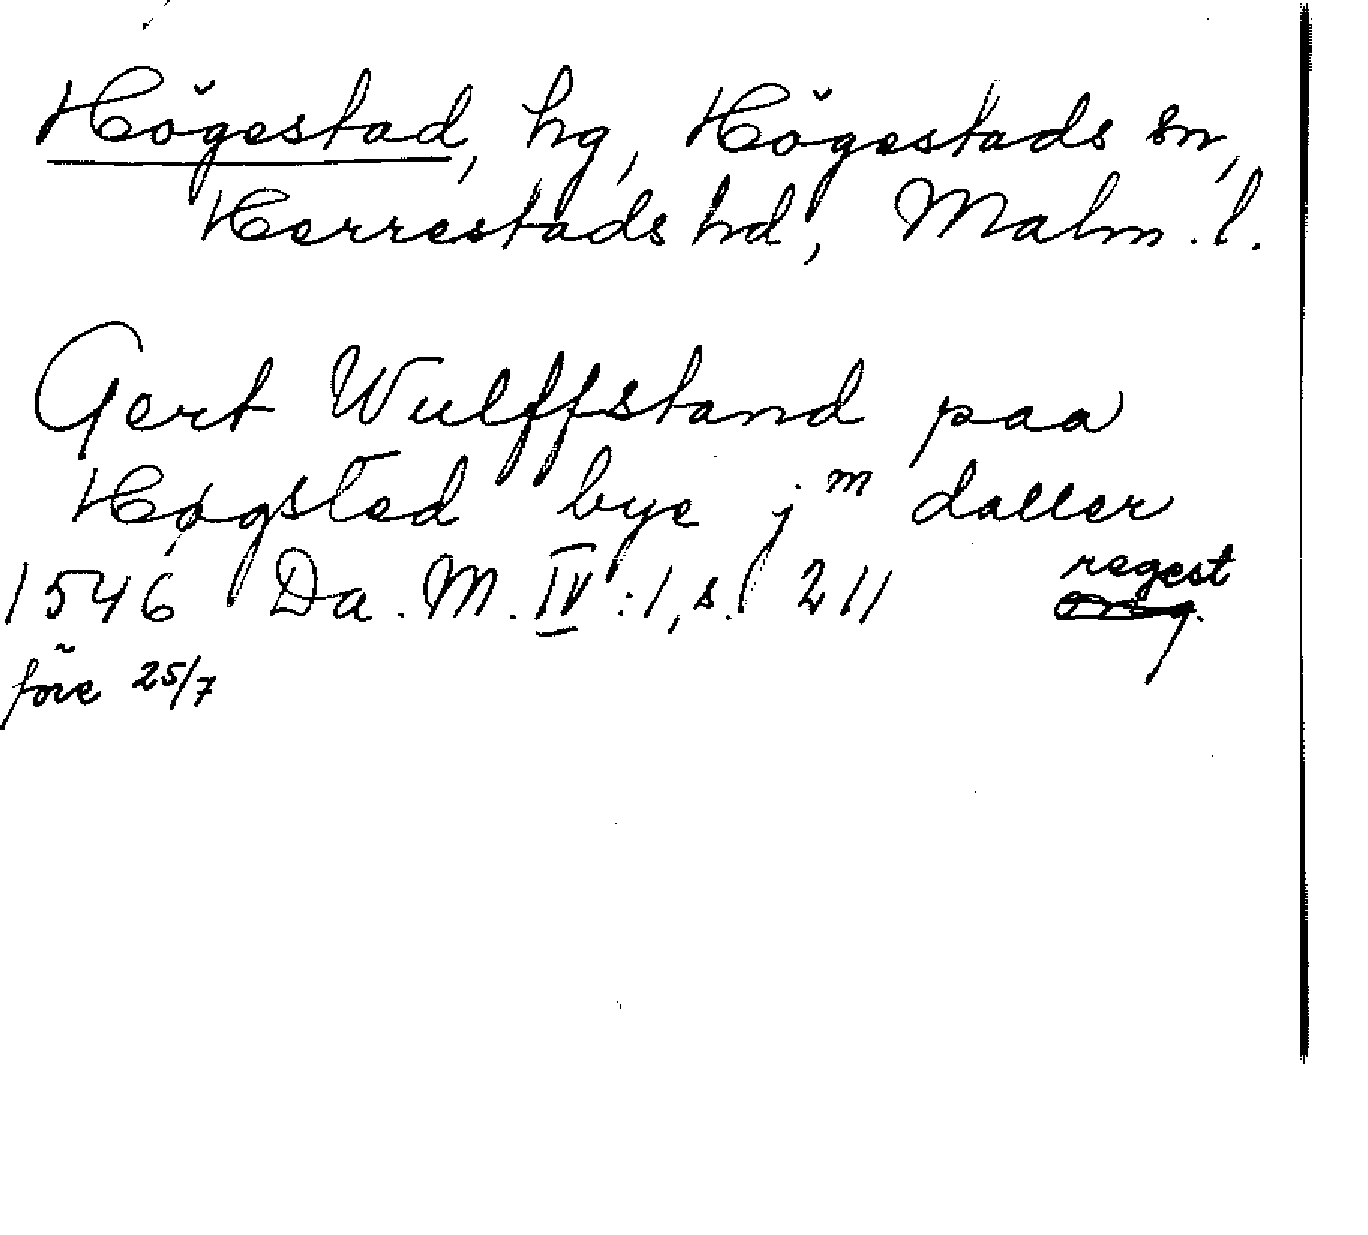 Högestad, hg, Högestads sn,
Herrestads hd, Malm. l.
Gert Wulffstand paa
Høgsted bye jm daller
regest
1546 Da. M. IV:1, s. 211 orig.
före 25/7